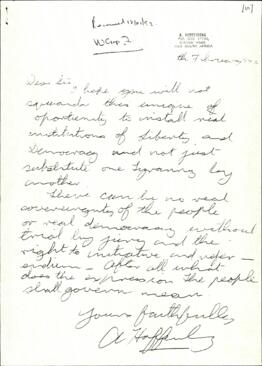 [10]
Received 13/2/92
W Grp 2
A. HOFFENBERG
7th February 1992
Dear Sir,
I hope you will not
squander this unique
opportunity to install real
institutions of liberty and
democracy and not just
substitute one tyranny by
another.
There can be no real
sovereignty of the people
or real democracy without
trial by jury and the
right to initiative and refer-
endum. After all what
does the expression the people
shall govern mean
Yours faithfully
A Hoffenberg